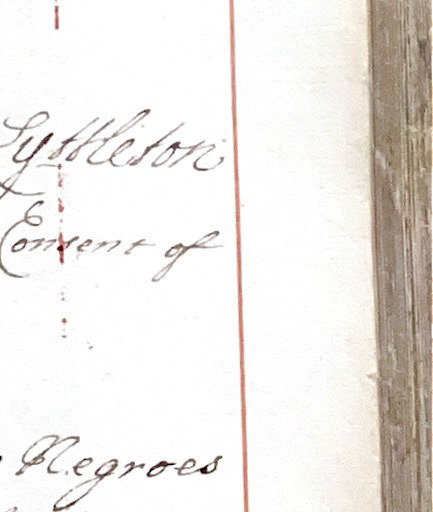 Lyttleton
Consent of
Negroes